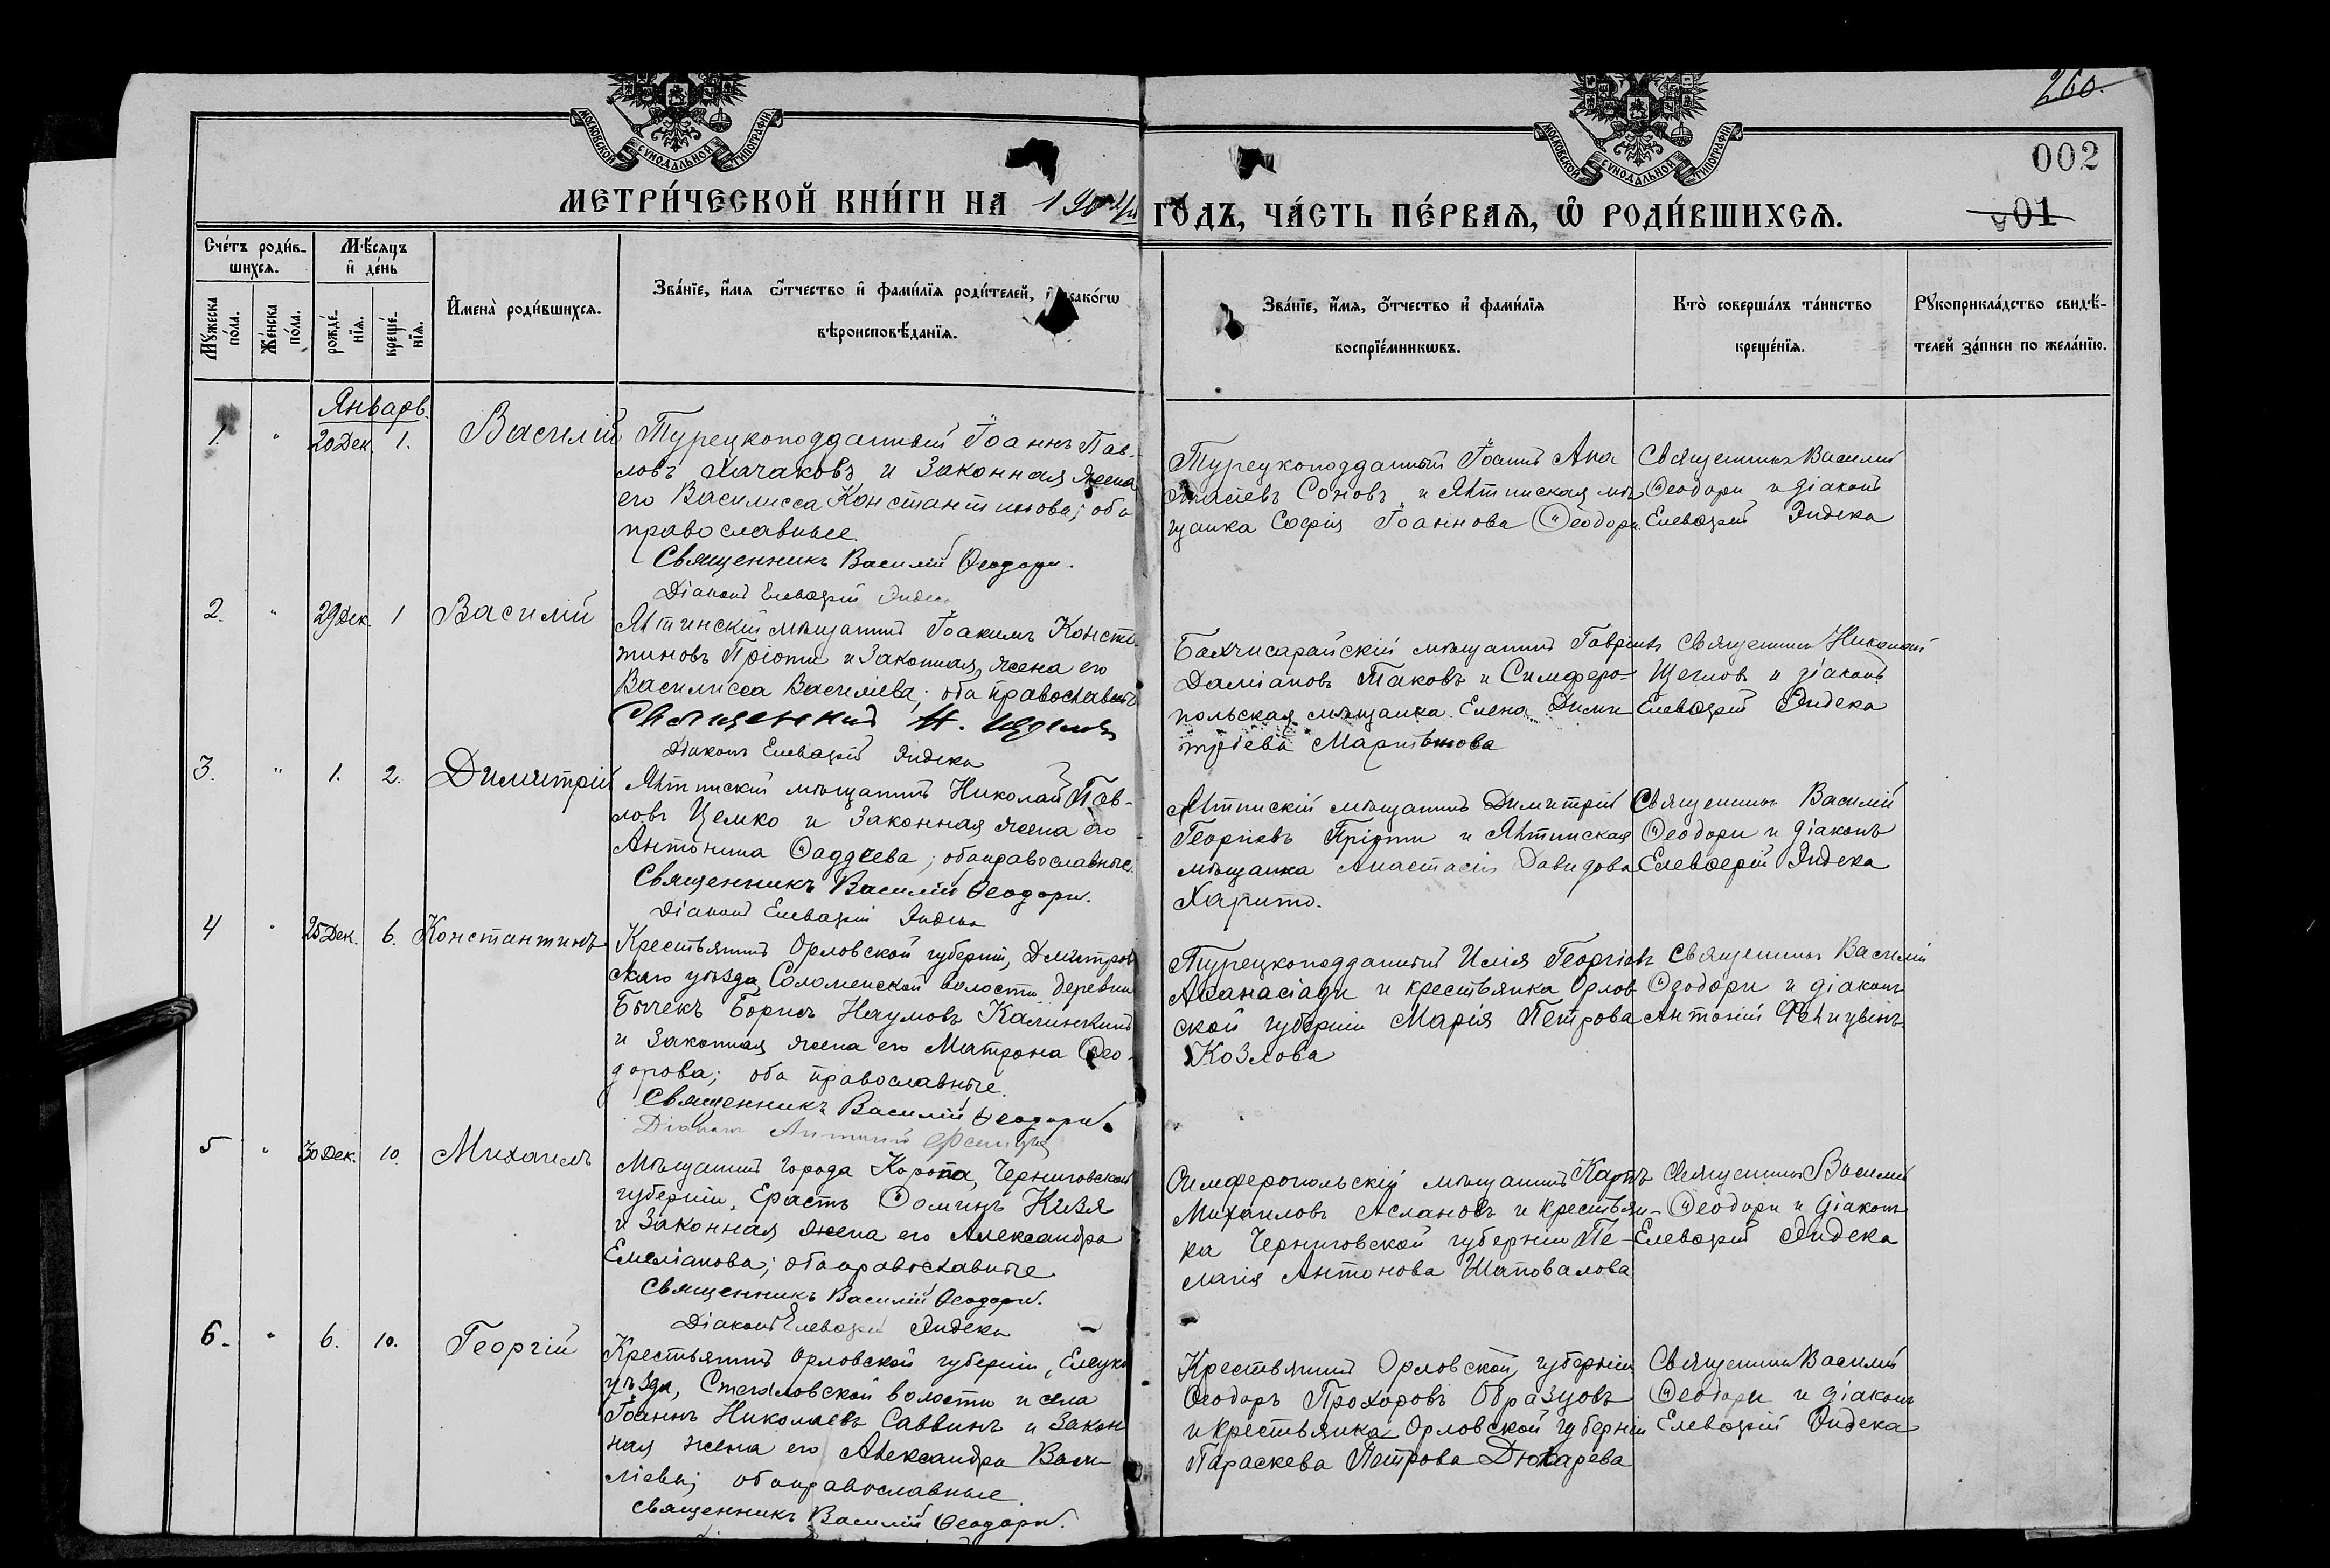 260.
002
01
МОСКОВСКОЙ СѴНОДАЛЬНОЙ ТИПОГРАФІИ
МОСКОВСКОЙ СѴНОДАЛЬНОЙ ТИПОГРАФІИ
МЕТРИ́ЧЕСКОЙ КНИ́ГИ НА 1904й ГО́ДЪ, ЧА́СТЬ ПЕ́РВАѦ, Ѡ РОДИ́ВШИХСѦ.
Сче́тъ роди́в-
шихсѧ.
Мꙋжеска по́ла.
Же́нска по́ла.
Мѣ́сѧцъ
и҆ де́нь
рожде́-
нїѧ.
креще́-
нїѧ.
И҆мена̀ роди́вшихсѧ.
Зва́нїе, и҆́мѧ ѻ҆́тчество и҆ фами́лїѧ роди́телей, и҆ какогѡ
вѣроисповѣ́данїѧ.
Зва́нїе, и҆́мѧ, ѻ҆́тчество и҆ фами́лїѧ
воспрїе́мникѡвъ.
Кто̀ соверша́лъ та́инство
креще́нїѧ.
Рꙋкоприкла́дство свидѣ́-
телей за́писи по жела́нїю.
Январь.
1. " 20 Дек. 1. Василій
Турецкоподданный Іоаннъ Пав-
ловъ Хачаковъ и законная жена
его Василисса Константинова; оба
православные.
Священникъ Василій Ѳеодори.
Діаконъ Елевѳерій Яндека
Турецкоподданный Іоаннъ Ана
стасіевъ Соновъ и Ялтинская мѣ
щанка Софія Іоаннова Ѳеодори.
Священникъ Василій
Ѳеодори и діаконъ
Елевѳерій Яндека
2. " 29 Дек. 1 Василій
Ялтинскій мѣщанинъ Іоакимъ Конста
тиновъ Пріоти и законная жена его
Василисса Василіева; оба православные
Священникъ Н. Щегловъ
Діаконъ Елевѳерій Яндека
Бахчисарайскій мѣщанинъ Гавріилъ
Даміановъ Таковъ и Симферо-
польская мѣщанка Елена Дими
тріева Мартынова
Священникъ Николай
Щегловъ и діаконъ
Елевѳерій Яндека
3. " 1. 2. Димитрій
Ялтинскій мѣщанинъ Николай Пав-
ловъ Цемко и законная жена его
Антонина Ѳаддеева; оба православные.
Священникъ Василій Ѳеодори.
Діаконъ Елевѳерій Яндека
Ялтинскій мѣщанинъ Димитрій
Георгіевъ Пріоти и Ялтинская
мѣщанка Анастасія Давидова
Харито.
Священникъ Василій
Ѳеодори и діаконъ
Елевѳерій Яндека
4 " 25 Дек. 6. Константинъ
Крестьянинъ Орловской губерніи, Дмитров
скаго уѣзда, Соломенской волости деревни
Бычекъ Борисъ Наумовъ Калинкинъ
и законная жена его Матрона Ѳео-
дорова; оба православные.
Священникъ Василій Ѳеодори.
Діаконъ Антоній
Турецкоподданный Илія Георгіевъ
Аѳанасіади и крестьянка Орлов-
ской губерніи Марія Петрова
Козлова
Священникъ Василій
Ѳеодори и діаконъ
Антоній
5 " 30 Дек. 10. Михаилъ
Мѣщанинъ города Коропа, Черниговской
губерніи, Ерастъ Ѳоминъ Кизя
и законная жена его Александра
Емеліанова; оба православные
Священникъ Василій Ѳеодори.
Діаконъ Елевѳерій Яндека
Симферопольскій мѣщанинъ Карпъ
Михаиловъ Аслановъ и крестьян-
ка Черниговской губерніи Пе-
лагія Антонова Шаповалова
Священникъ Василій
Ѳеодори и діаконъ
Елевѳерій Яндека
6. " 6. 10. Георгій
Крестьянинъ Орловской губерніи, Елецка
уѣзда, Стегаловской волости и села
Іоаннъ Николаевъ Саввинъ и закон
ная жена его Александра Васи-
ліева; оба православные.
Священникъ Василій Ѳеодори.
Крестьянинъ Орловской губерніи
Ѳеодоръ Прохоровъ Образцовъ
и крестьянка Орловской губерніи
Параскева Петрова Дюкарева
Священникъ Василій
Ѳеодори и діаконъ
Елевѳерій Яндека